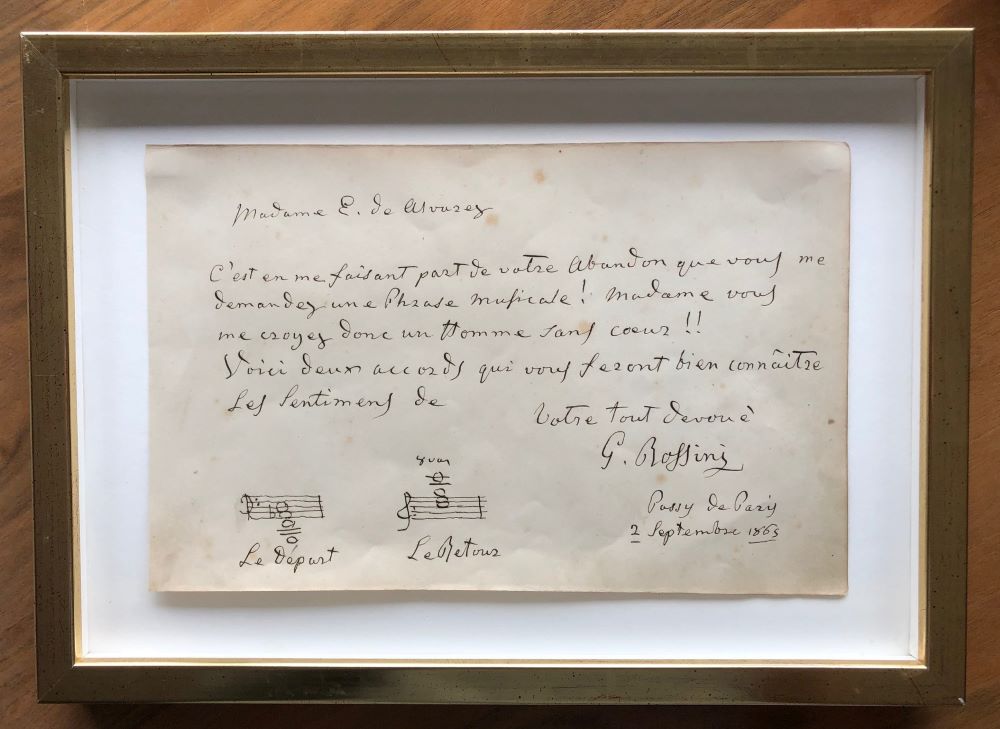 Madame E. de Alvarez
C'est en me faisant part de votre Abandon que vous me
demandez une Phrase musicale! Madame vous
me croyez donc un Homme sans coeur !!
Voici deux accords qui vous feront bien connaître
Les Sentimens de
Votre tout devoué
G. Rossini
8vas
Passy de Paris
2 Septembre 1863
Le Départ
Le Retour